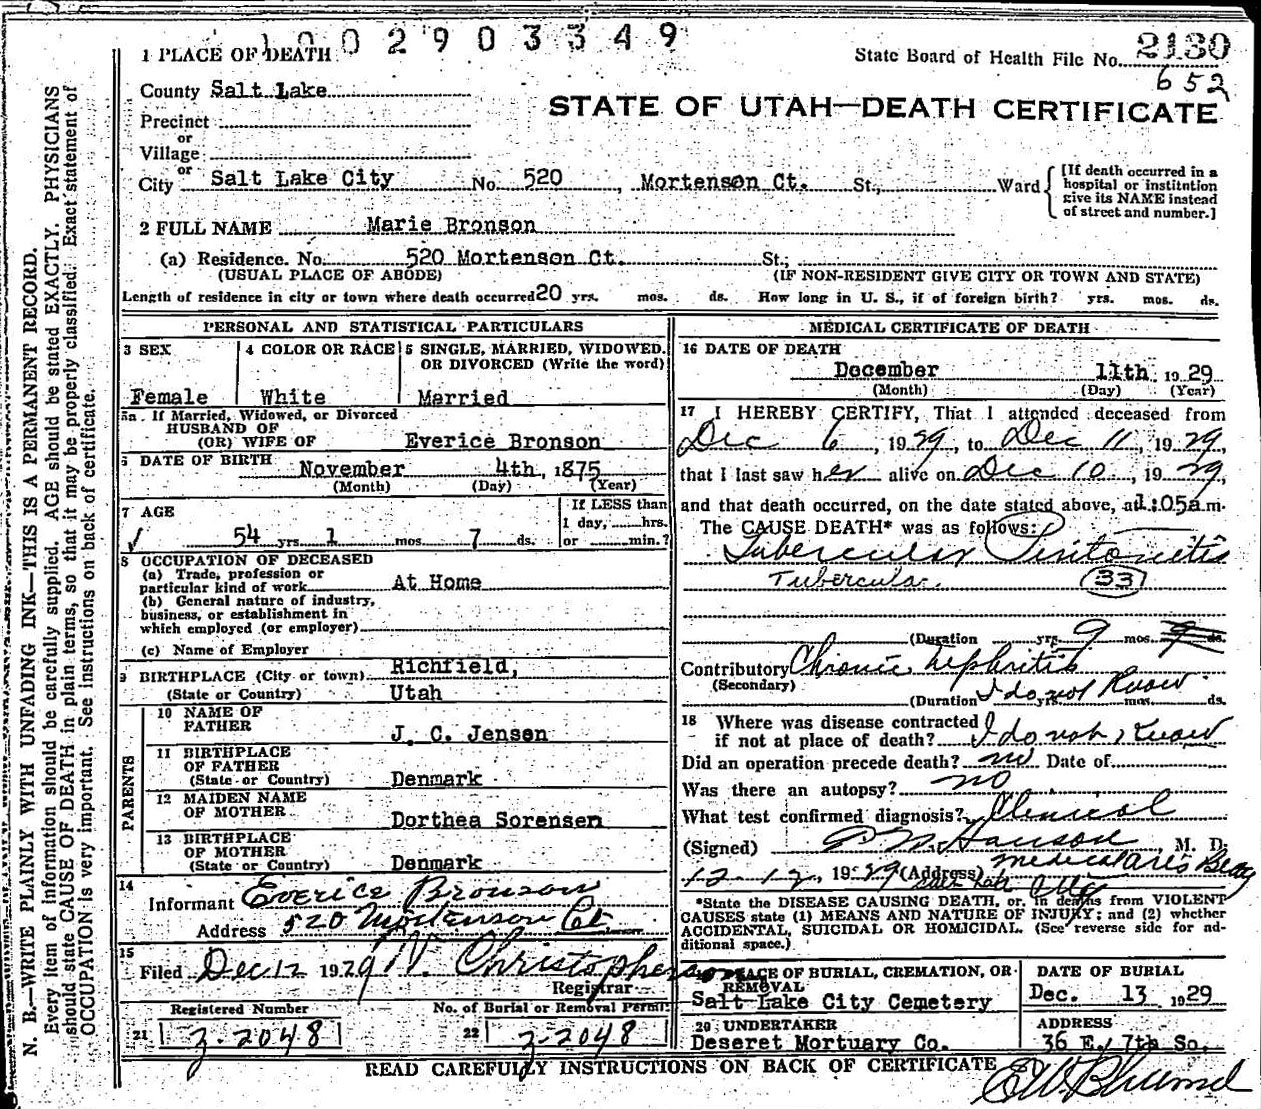 1002903349
1 PLACE OF DEATH
State Board of Health File No. 2130
652
County Salt Lake
STATE OF UTAH—DEATH CERTIFICATE
Precinct
or
Village
or
City Salt Lake City No. 520, Mortenson Ct. St., Ward
[If death occurred in a
hospital or institution
give its NAME instead
of street and number.]
2 FULL NAME Marie Bronson
(a) Residence. No. 520 Mortenson Ct. St.,
(USUAL PLACE OF ABODE) (IF NON-RESIDENT GIVE CITY OR TOWN AND STATE)
Length of residence in city or town where death occurred 20 yrs. mos. ds. How long in U. S., if of foreign birth? yrs. mos. ds.
PERSONAL AND STATISTICAL PARTICULARS
3 SEX
Female
4 COLOR OR RACE
White
5 SINGLE, MARRIED, WIDOWED,
OR DIVORCED (Write the word)
Married
5a If Married, Widowed, or Divorced
HUSBAND OF
(OR) WIFE OF Everice Bronson
6 DATE OF BIRTH
November 4th, 1875
(Month) (Day) (Year)
7 AGE
54 yrs. 1 mos. 7 ds.
If LESS than
1 day, hrs.
or min.?
8 OCCUPATION OF DECEASED
(a) Trade, profession or
particular kind of work At Home
(b) General nature of industry,
business, or establishment in
which employed (or employer)
(c) Name of Employer
Richfield,
9 BIRTHPLACE (City or town)
(State or Country) Utah
PARENTS
10 NAME OF
FATHER J. C. Jensen
11 BIRTHPLACE
OF FATHER
(State or Country) Denmark
12 MAIDEN NAME
OF MOTHER Dorthea Sorensen
13 BIRTHPLACE
OF MOTHER
(State or Country) Denmark
14
Informant Everice Bronson
Address 520 Mortenson Ct
15
Filed Dec 12 1929 W. Christopherson
Registrar
Registered Number
21 z-2048
No. of Burial or Removal Permit
22 z-2048
MEDICAL CERTIFICATE OF DEATH
16 DATE OF DEATH
December 11th 1929
(Month) (Day) (Year)
17 I HEREBY CERTIFY, That I attended deceased from
Dec 6, 1929, to Dec 11, 1929,
that I last saw her alive on Dec 10, 1929,
and that death occurred, on the date stated above, at 1:05a.m.
The CAUSE DEATH* was as follows:
Tubercular Peritonitis
Tubercular. 33
(Duration yrs. 9 mos. ds.
Contributory Chronic Nephritis
(Secondary)
(Duration I do not know yrs. mos. ds.
18 Where was disease contracted
if not at place of death? I do not know
Did an operation precede death? no Date of
Was there an autopsy? no
What test confirmed diagnosis? Clinical
(Signed) Hanson, M. D.
12-12, 1929 (Address) Medical Arts Bldg
Salt Lake City
*State the DISEASE CAUSING DEATH, or, in deaths from VIOLENT
CAUSES state (1) MEANS AND NATURE OF INJURY; and (2) whether
ACCIDENTAL, SUICIDAL OR HOMICIDAL. (See reverse side for ad-
ditional space.)
PLACE OF BURIAL, CREMATION, OR
REMOVAL
Salt Lake City Cemetery
DATE OF BURIAL
Dec. 13 1929
20 UNDERTAKER
Deseret Mortuary Co.
ADDRESS
36 E. 7th So.
READ CAREFULLY INSTRUCTIONS ON BACK OF CERTIFICATE
N. B.—WRITE PLAINLY WITH UNFADING INK—THIS IS A PERMANENT RECORD.
Every item of information should be carefully supplied. AGE should be stated EXACTLY. PHYSICIANS
should state CAUSE OF DEATH in plain terms, so that it may be properly classified. Exact statement of
OCCUPATION is very important. See instructions on back of certificate.